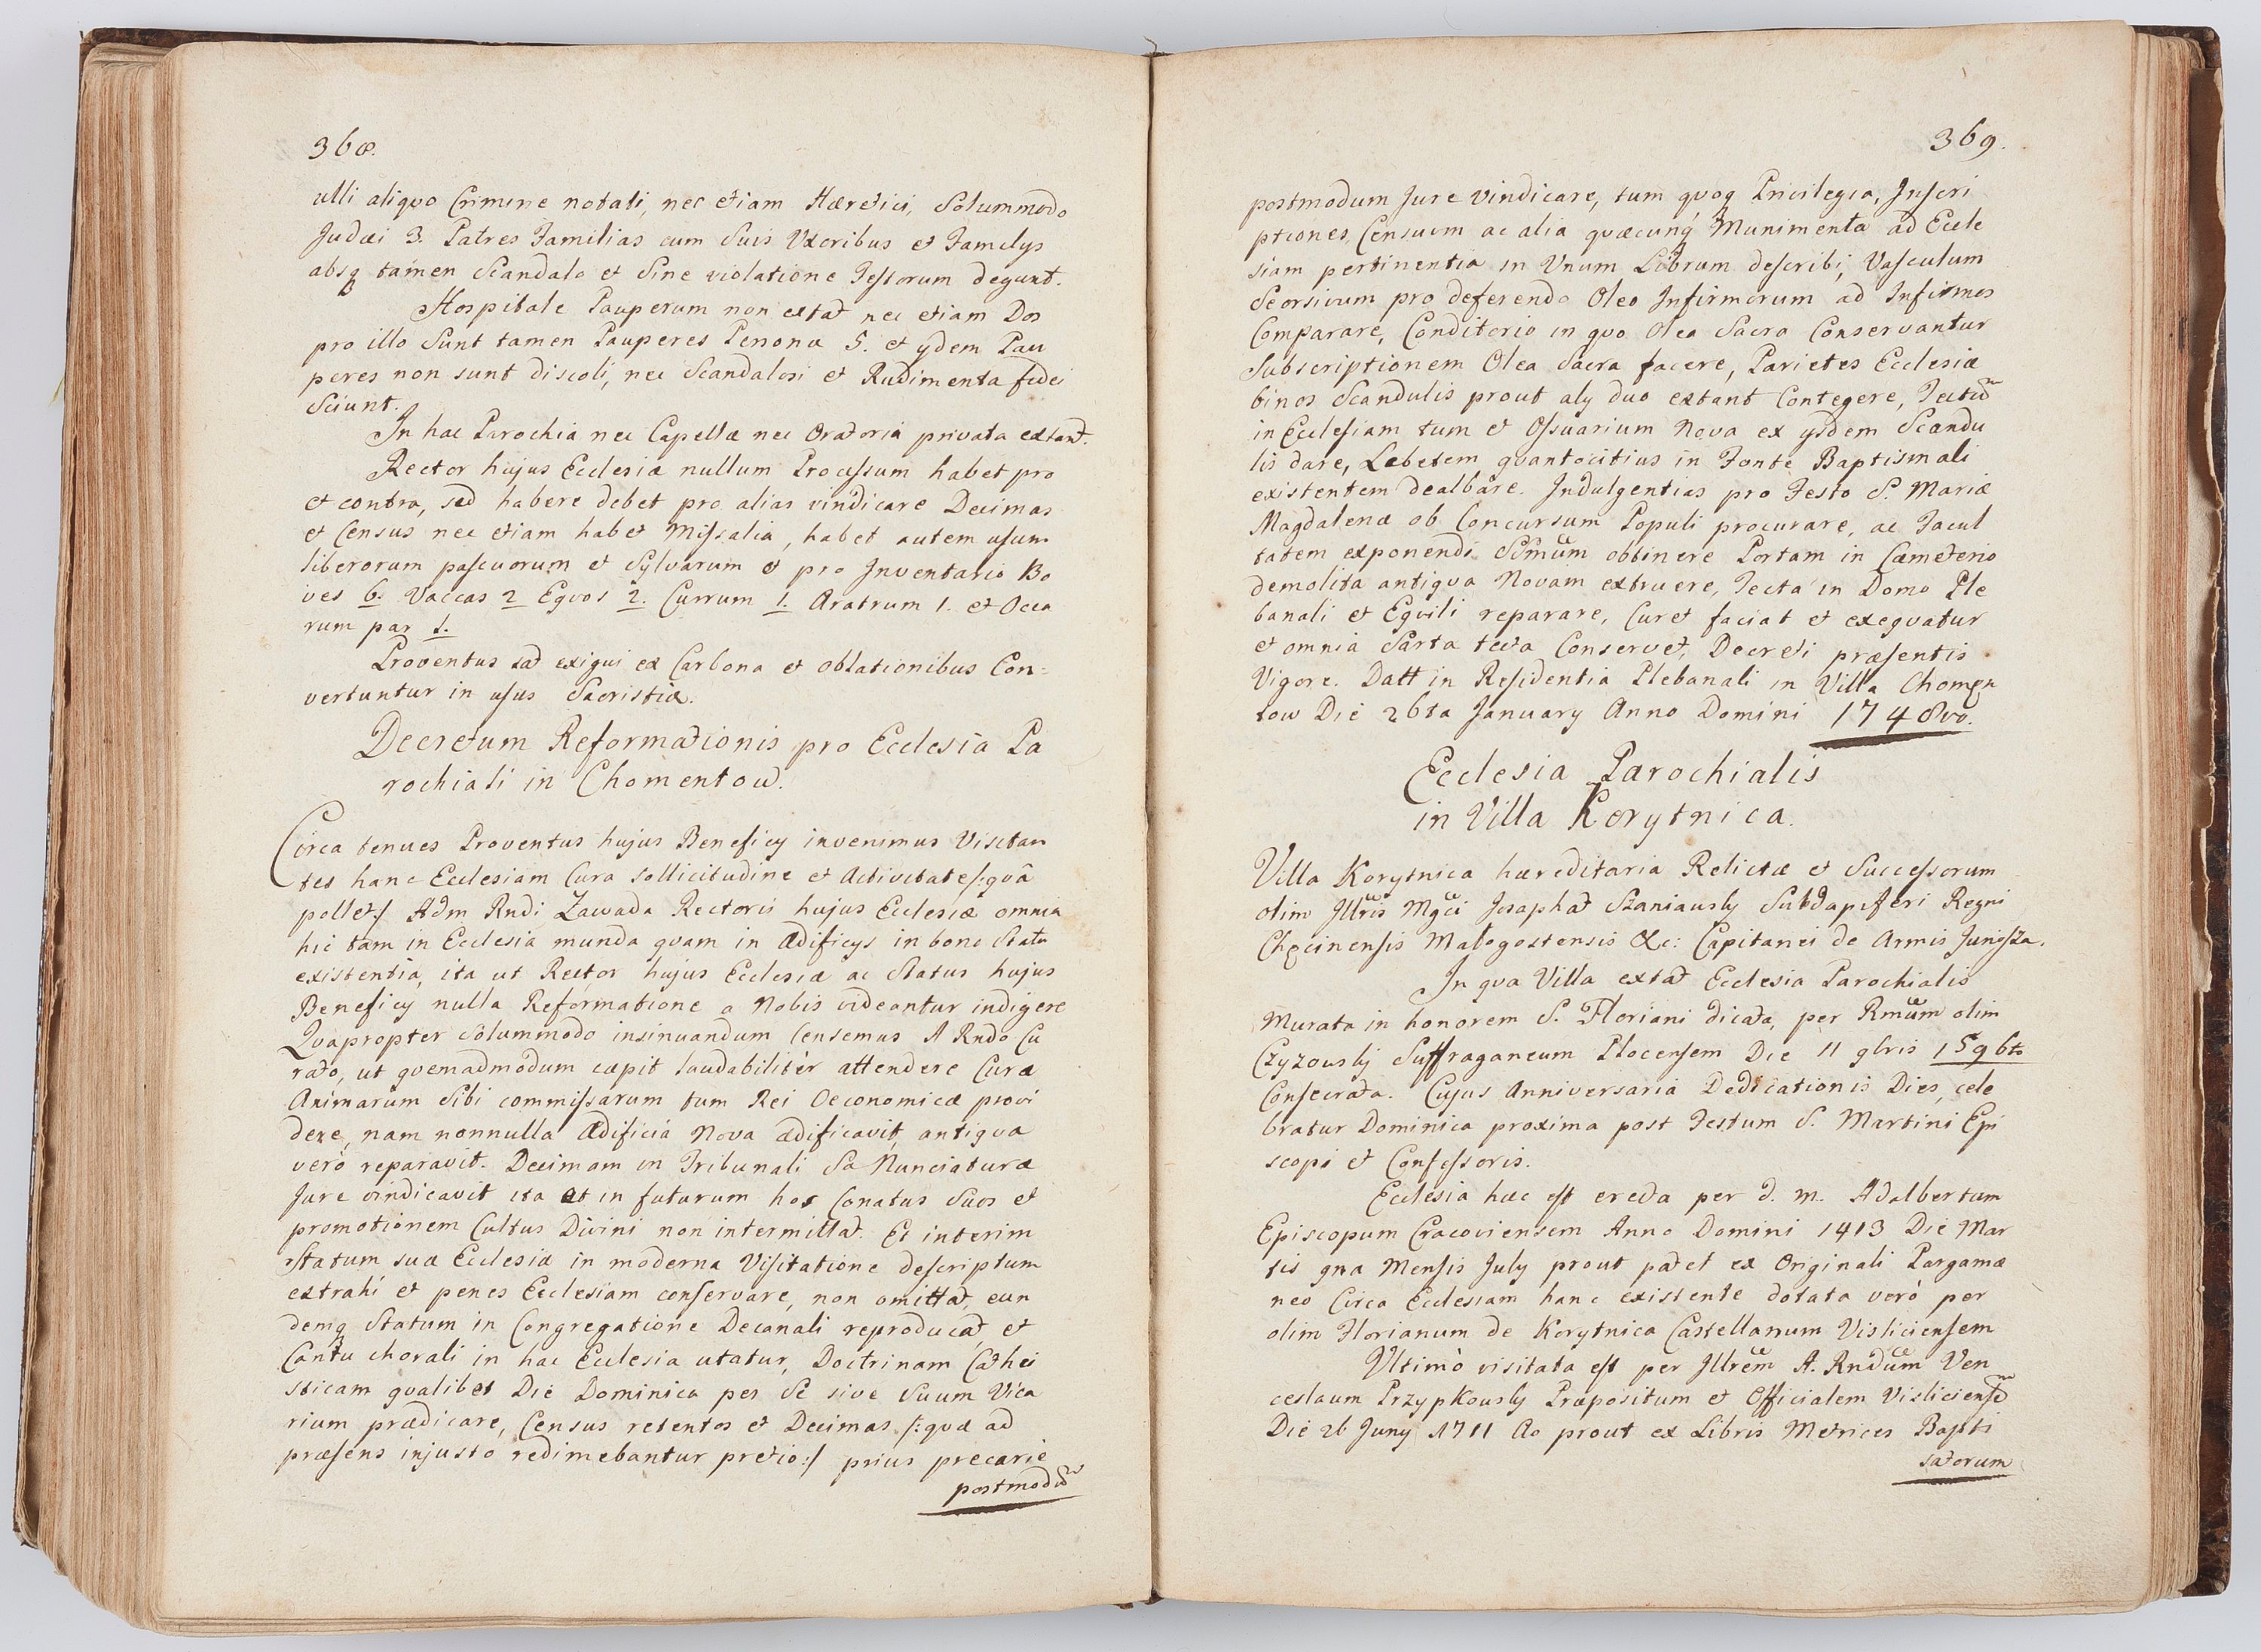 368.
ulli aliquo Crimine notati, nec etiam Hæretici, Solummodo
Judæi 3. Patres Familias cum Suis Uxoribus et Familys
absq tamen Scandalo et Sine violatione Festorum degunt.
Hospitale Pauperum non extat nec etiam Dos
pro illo Sunt tamen Pauperes Personæ 5. et ydem Pau
peres non sunt discoli, nec Scandalosi et Rudimenta fidei
Sciunt.
In hac Parochia nec Capellæ nec Oratoria privata extant.
Rector hujus Ecclesiæ nullum Processum habet pro
et contra, sed habere debet pro alias vindicare Decimas
et Census nec etiam habet Missalia, habet autem usum
liberorum pascuorum et Sylvarum et pro Inventario Bo
ves 6. Vaccas 2 Equos 2. Currum 1. Aratrum 1. et Occa
rum par 1.
Proventus sat exigui ex Carbona et oblationibus Con=
vertuntur in usus Sacristiæ.
Decretum Reformationis pro Ecclesia Pa
rochiali in Chomentow.
Circa tenues Proventus hujus Beneficy invenimus Visitan
tes hanc Ecclesiam Cura sollicitudine et Activitate /:quâ
pollet:/ Adm Rndi Zawada Rectoris hujus Ecclesiæ omnia
hic tam in Ecclesia munda quam in Ædificys in bono Statu
existentia, ita ut Rector hujus Ecclesiæ ac Status hujus
Beneficy nulla Reformatione a Nobis videantur indigere
Quapropter Solummodo insinuandum Censemus A Rndo Cu
rato, ut quemadmodum cæpit laudabilitèr attendere Curæ
Animarum Sibi commissarum tum Rei Oeconomicæ provi
dere, nam nonnulla Ædificia Nova ædificavit, antiqua
verò reparavit. Decimam in Tribunali Sæ Nunciaturæ
Jure vindicavit ita et in futurum hos Conatus Suos et
promotionem Cultus Divini non intermittat. Et interim
Statum suæ Ecclesiæ in moderna Visitatione descriptum
extrahi et penes Ecclesiam conservare, non omittat, eun
demq Statum in Congregatione Decanali reproducat, et
Cantu chorali in hac Ecclesia utatur, Doctrinam Cathei
sticam qualibet Die Dominica per Se sive Suum Vica
rium prædicare, Census retentos et Decimas /:quæ ad
præsens injusto redimebantur pretio:/ prius precariè
postmodũ
369.
postmodum Jure vindicare, tum quoq Privilegia, Inscri
ptiones, Censuum ac alia quæcunq Munimenta ad Eccle
siam pertinentia in Unum Librum describi, Vasculum
Seorsivum pro deferendo Oleo Infirmorum ad Infirmos
Comparare, Conditorio in quo Olea Sacra Conservantur
Subscriptionem Olea Sacra facere, Parietes Ecclesiæ
binos Scandulis prout aly duo extant Contegere, Tectũ
in Ecclesiam tum et Ossuarium Nova ex ysdem Scandu
lis dare, Lebetem quantocitius in Fonte Baptismali
existentem dealbare. Indulgentias pro Festo S. Mariæ
Magdalenæ ob Concursum Populi procurare, ac Facul
tatem exponendi SSmum obtinere Portam in Cæmeterio
demolita antiqua Novam extruere, Tecta in Domo Ple
banali et Equili reparare, Curet faciat et exequatur
et omnia Sarta tecta Conservet, Decreti præsentis
Vigore. Datt in Residentia Plebanali in Villa Chomen
tow Die 26ta January Anno Domini 1748vo.
Ecclesia Parochialis
in Villa Korytnica.
Villa Korytnica hæreditaria Relictæ et Successorum
olim Illris Mgci Josaphat Szaniawsky Subdapiferi Regni
Chęcinensis Malogostensis &c: Capitanei de Armis Junosza.
In qua Villa extat Ecclesia Parochialis
Murata in honorem S. Floriani dicata, per Rmum olim
Czyzowsky Suffraganeum Plocensem Die 11 9bris 1596to
Consecrata. Cujus Anniversaria Dedicationis Dies, cele
bratur Dominica proxima post Festum S. Martini Epi
scopi et Confessoris.
Ecclesia hæc est erecta per d. m. Adalbertum
Episcopum Cracoviensem Anno Domini 1413 Die Mar
tis 9na Mensis July prout patet ex Originali Pargamæ
neo Circa Ecclesiam hanc existente dotata verò per
olim Florianum de Korytnica Castellanum Visliciensem
Ultimò visitata est per Illrem A. Rndum Ven
ceslaum Przypkowsky Præpositum et Officialem Visliciensẽ
Die 26 Juny 1711 Ao prout ex Libris Metrices Bapti
satorum